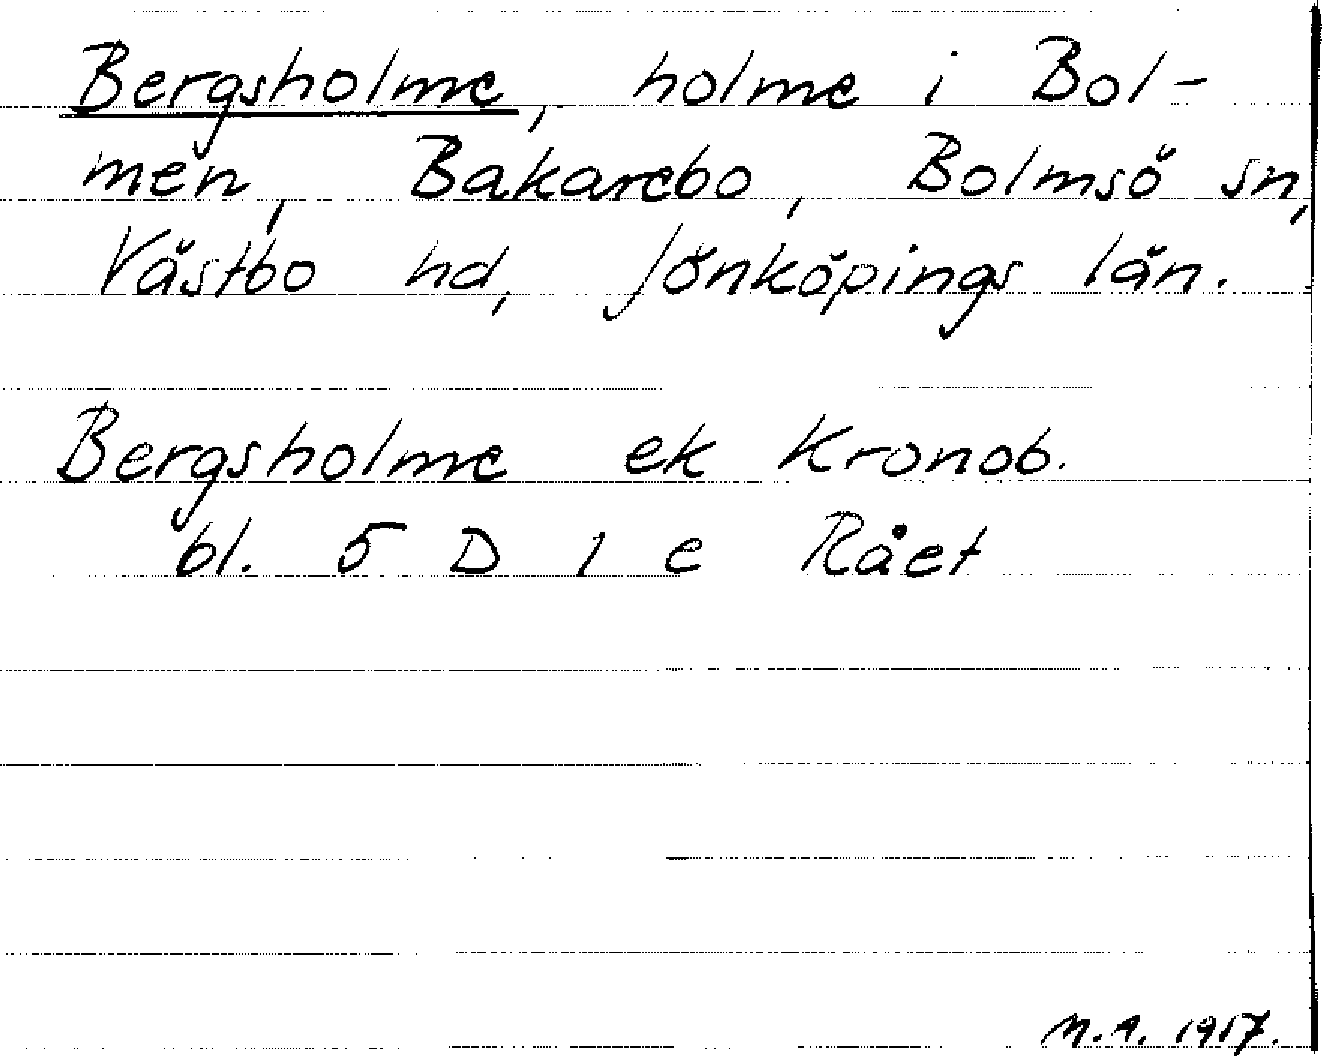 Bergsholme, holme i Bol-
men, Bakarebo, Bolmsö sn,
Västbo hd, Jönköpings län.
Bergsholme ek Kronob.
bl. 5 D 1 e Rået
M.A. 1957.